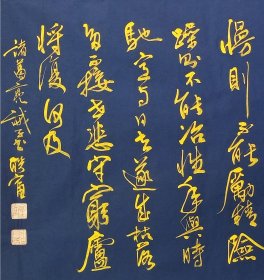 慢則不能勵精險
躁則不能冶性年與時
馳意與日去遂成枯落
多不接世悲守窮廬
將復何及
諸葛亮誡子書